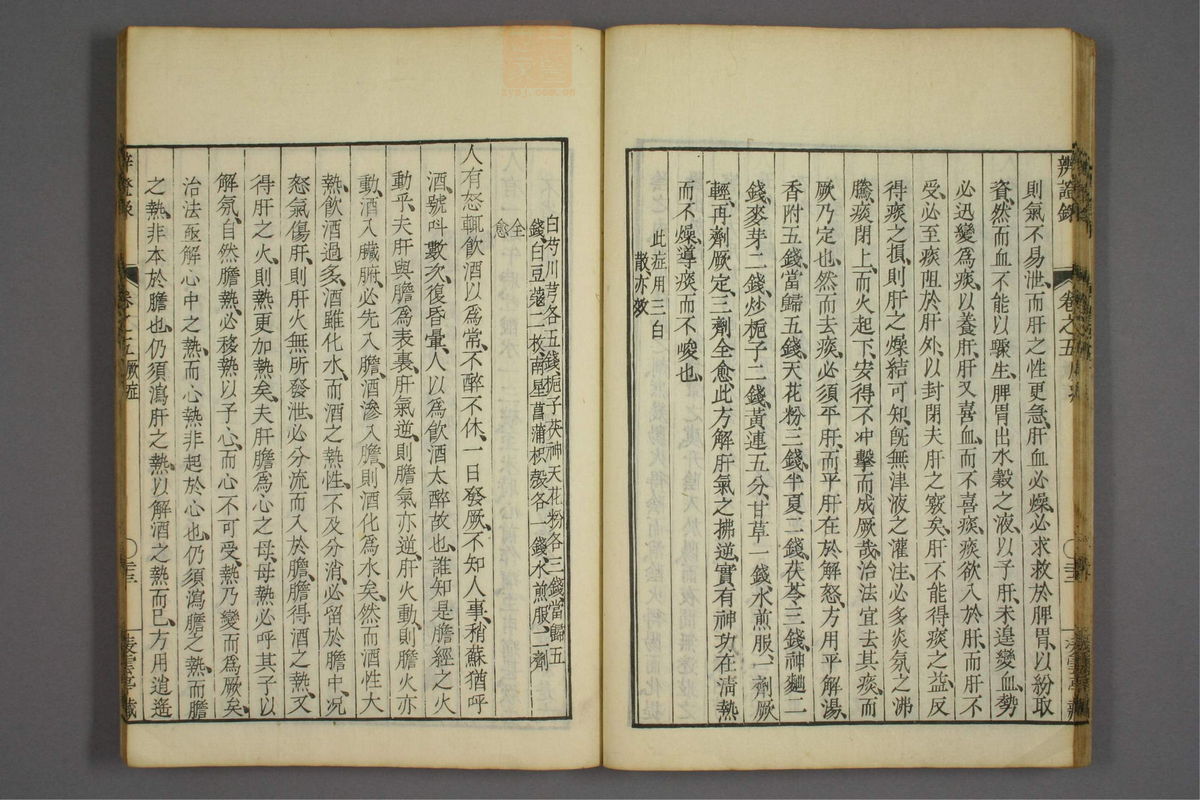 辨證錄
卷之五
則氣不易泄、而肝之性更急、肝血必燥、必求救於脾胃、以紛取
資、然而血不能以驟生、脾胃出水穀之液、以予肝、未遑變血、勢
必迅變爲痰、以養肝、肝又喜血、而不喜痰、痰欲入於肝、而肝不
受、必至痰阻於肝外、以封閉夫肝之竅矣、肝不能得痰之益、反
得痰之損、則肝之燥結可知、旣無津液之灌注、必多炎氛之沸
騰、痰閉上、而火起下、安得不冲擊而成厥哉、治法宜去其痰、而
厥乃定也、然而去痰、必須平肝、而平肝在於解怒、方用平解湯、
香附五錢、當歸五錢、天花粉三錢、半夏二錢、茯苓三錢、神麯二
錢、麥芽二錢、炒梔子二錢、黃連五分、甘草一錢、水煎服、一劑厥
輕、再劑厥定、三劑全愈、此方解肝氣之拂逆、實有神功、在清熱
而不燥、導痰而不峻也、
此症用三白
散亦效
白芍川芎各五錢、梔子茯神天花粉各三錢、當歸五
錢、白豆蔻二枚、南星菖蒲枳殼各一錢、水煎服、一劑
全
愈
人有怒輒飲酒以爲常、不醉不休、一日發厥、不知人事、稍蘇猶呼
酒、號叫數次、復昏暈、人以爲飲酒太醉故也、誰知是膽經之火
動乎、夫肝與膽爲表裏、肝氣逆、則膽氣亦逆、肝火動、則膽火亦
動、酒入臟腑、必先入膽、酒滲入膽、則酒化爲水矣、然而酒性大
熱、飲酒過多、酒雖化水、而酒之熱性、不及分消、必留於膽中、況
怒氣傷肝、則肝火無所發泄、必分流而入於膽、膽得酒之熱、又
得肝之火、則熱更加熱矣、夫肝膽爲心之母、母熱必呼其子以
解氛、自然膽熱、必移熱以予心、而心不可受、熱乃變而爲厥矣、
治法亟解心中之熱、而心熱非起於心也、仍須瀉膽之熱、而膽
之熱、非本於膽也、仍須瀉肝之熱、以解酒之熱而已、方用逍遙
卷之五 厥症